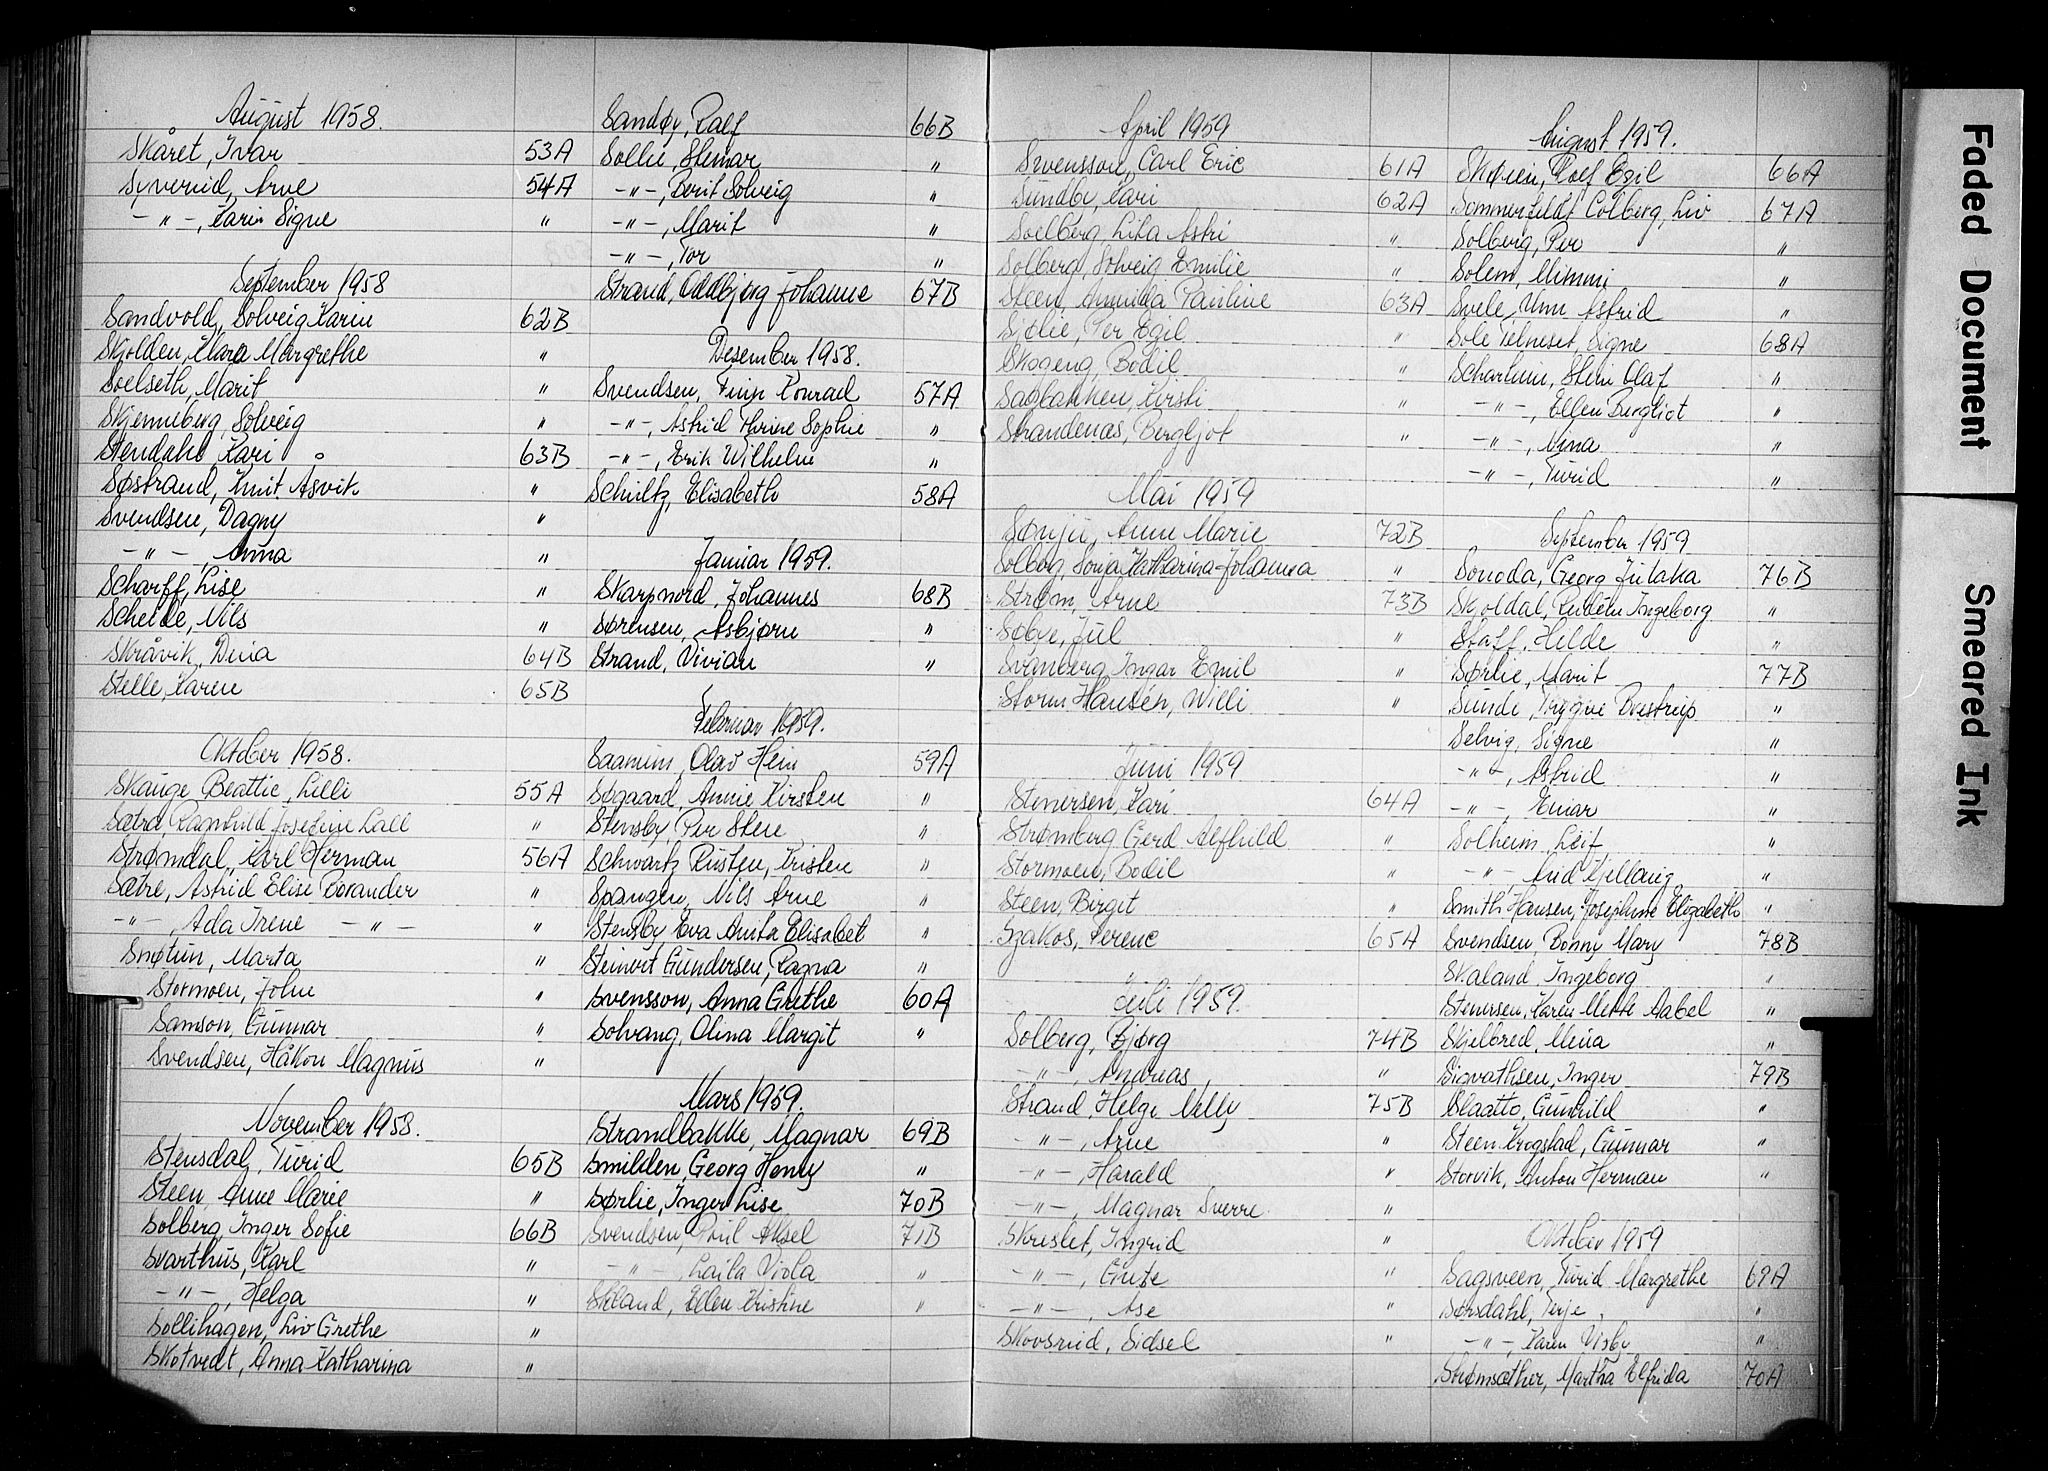 August 1958.
Skåret, Ivar 53A
Syverud, Arve 54A
-〃-, Karin Signe 〃
September 1958
Sandvold, Solveig Karin 62B
Skjolden, Mara Margrethe 〃
Soelseth, Marit 〃
Skjenneberg, Solveig 〃
Stendahl Kari 63B
Søstrand, Knut Asvik 〃
Svendsen, Dagny 〃
-〃-, Anna 〃
Scharff, Lise 〃
Scheide, Nils 〃
Skråvik, Dina 64B
Stelle, Karen 65B
Oktober 1958.
Skauge Beattie, Lilli 55A
Sætra, Ragnhild Josefine Lall 〃
Strømdal, Karl Herman 56A
Sætre, Astrid Elise Borander 〃
-〃-, Ada Irene -〃- 〃
Snøtun, Marta 〃
Stormoen, John 〃
Samson, Gunnar 〃
Svendsen, Håkon Magnus 〃
November 1958.
Stensdal, Turid 65B
Steen, Anne Marie 〃
Solberg, Inger Sofie 66B
Svarthus, Karl 〃
-〃-, Helga 〃
Sollihagen, Liv Grethe 〃
Skotvedt, Anna Katharina 〃
Sandør, Ralf 66B
Sollie, Steinar 〃
-〃-, Berit Solveig 〃
-〃-, Marit 〃
-〃-, Tor 〃
Strand, Oddbjørg Johanne 67B
Desember 1958.
Svendsen, Finn Konrad 57A
-〃-, Astrid Thrine Sophie 〃
-〃-, Erik Wilhelm 〃
Schultz, Elisabeth 58A
Januar 1959.
Skarpnord, Johannes 68B
Sørensen, Asbjørn 〃
Strand, Vivian 〃
Februar 1959.
Saanum, Olav Hein 59A
Søgaard, Annie Kirsten 〃
Stensby, Per Sten 〃
Schwartz Rusten, Kristen 〃
Spangen, Nils Arne 〃
Stensby Eva Anita Elisabet 〃
Steinert Gundersen, Ragna 〃
Svensson, Anna Grethe 60A
Solvang, Olina Margit 〃
Mars 1959.
Strandbakke, Magnar 69B
Smilden, Georg Henry 〃
Sørlie, Inger Lise 70B
Svendsen, Poul Aksel 71B
-〃-, Laila Viola 〃
Skland, Ellen Kristine 〃
April 1959
Swensson, Carl Eric 61A
Sundby, Kari 62A
Soelberg, Lita Astri 〃
Solberg, Solveig Emilie 〃
Steen, Annilda Pauline 63A
Sjølie, Per Egil 〃
Skogeng, Bodil 〃
Sagbakken, Kirsti 〃
Strandenæs, Bergljot 〃
Mai 1959
Sønju, Anne Marie 72B
Solberg, Sonja Katharina Johanna 〃
Strøm, Arne 73B
Søbye, Jul 〃
Svanberg, Ingar Emil 〃
Storm Hansen, Willi 〃
Juni 1959
Stenersen, Kari 64A
Strømberg Gerd Alfhild 〃
Stormoen, Bodil 〃
Steen, Birgit 〃
Szakos, Ferenc 65A
Juli 1959.
Solberg, Bjørg 74B
-〃-, Andreas 〃
Strand, Helge Nelly 75B
-〃-, Arne 〃
-〃-, Harald 〃
-〃-, Magnar Sverre 〃
Skreslet, Ingrid 〃
-〃-, Grete 〃
-〃-, Åse 〃
Skovsrud, Sidsel 〃
August 1959.
Skøien, Rolf Egil 66A
Sommerfeldt Colberg, Liv 67A
Solberg, Per 〃
Solem, Mimmi 〃
Svele, Unn Astrid 〃
Sole Telneset, Signe 68A
Scharlum, Stein Olaf 〃
-〃-, Ellen Bergliot 〃
-〃-, Anna 〃
-〃-, Turid 〃
September 1959
Sonoda, Georg Jutaka 76B
Skjoldal, Ingeborg 〃
Staff, Helde 〃
Sørlie, Marit 77B
Sunde, Trygve Brestrup 〃
Selvig, Signe 〃
-〃-, Astrid 〃
-〃-, Einar 〃
Solheim, Leif 〃
-〃-, Arid Kjellaug 〃
Smith Hansen, Josephine Elizabeth 〃
Svendsen, Bonny Mary 78B
Skaland, Ingeborg 〃
Stenersen, Karen Mette Aabel 〃
Skjelbred, Mina 〃
Sigvathsen, Inger 79B
Slaatto, Gunhild 〃
Steen Krogstad, Gunnar 〃
Storvik, Anton Herman 〃
Oktober 1959
Sagsveen, Turid Margrethe 69A
Sørsdahl, Terje 〃
-〃-, Karen Visby 〃
Strømsæther, Martha Elfrida 70A
Faded Document
Smeared Ink